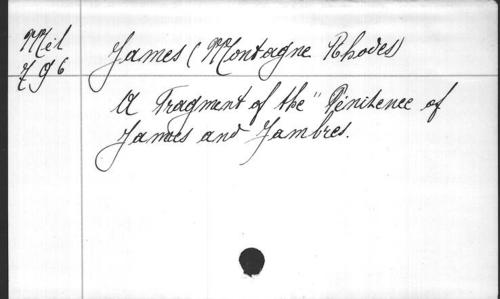 Mél
796
James (Montagne Rhodes)
A Fragment of the "Penitence of
Jannes and Jambres.